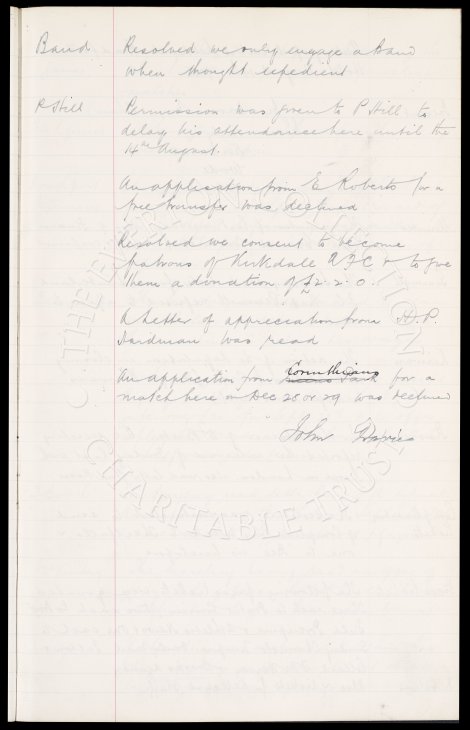 Band Resolved we only engage a Band
when thought expedient
P Hill Permission was given to P Hill to
delay his attendance here until the
14th August.
An application from E Roberts for a
free transfer was declined
Resolved we consent to become
patrons of Kirkdale A.F.C & to give
them a donation of £2. 2. 0.
A letter of appreciation from H. P.
Hardman was read
An application from Corinthians for a
match here on Dec 28 or 29 was declined
John Davies
THE EVERTON COLLECTION
CHARITABLE TRUST